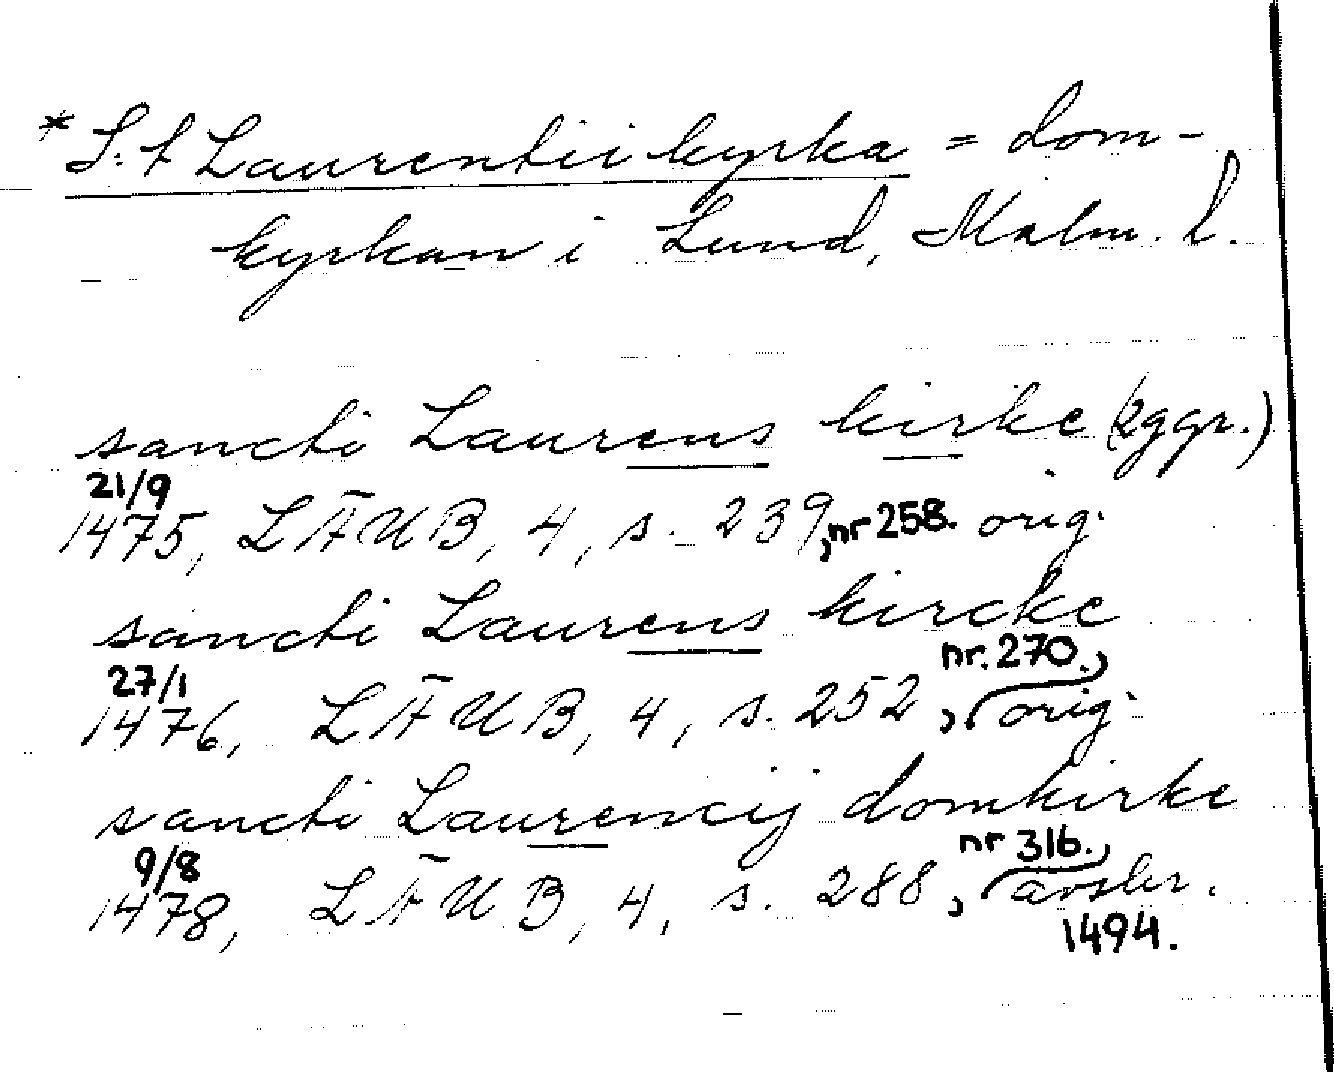 * S:t Laurentii kyrka = dom-
kyrkan i Lund, Malm. l.
sancti Laurens kirke (2 ggr.)
21/9
1475, LÄUB, 4, s. 239, nr 258. orig.
sancti Laurens kircke
27/1 nr. 270.,
1476, LÄUB, 4, s. 252, orig.
sancti Laurencij domkirke
9/8 nr 316.,
1478, LÄUB, 4, s. 288, avskr.
1494.